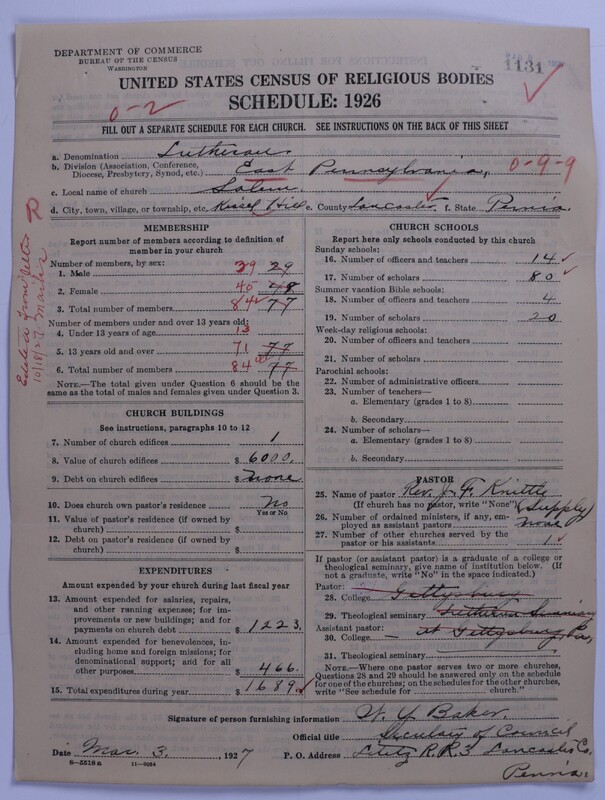 DEPARTMENT OF COMMERCE
BUREAU OF THE CENSUS
WASHINGTON
1131
UNITED STATES CENSUS OF RELIGIOUS BODIES
SCHEDULE: 1926
0-2
FILL OUT A SEPARATE SCHEDULE FOR EACH CHURCH. SEE INSTRUCTIONS ON THE BACK OF THIS SHEET
a. Denomination Lutheran
b. Division (Association, Conference, Diocese, Presbytery, Synod, etc.) East Pennsylvania, 0-9-9
c. Local name of church Salem
d. City, town, village, or township, etc. Kissel Hill e. County Lancaster f. State Penna.
MEMBERSHIP
Report number of members according to definition of
member in your church
Number of members, by sex:
1. Male 39 29
2. Female 45 48
3. Total number of members 84 77
Number of members under and over 13 years old:
4. Under 13 years of age 13
5. 13 years old and over 71 77
6. Total number of members 84 77
NOTE.—The total given under Question 6 should be the
same as the total of males and females given under Question 3.
CHURCH BUILDINGS
See instructions, paragraphs 10 to 12
7. Number of church edifices 1
8. Value of church edifices $ 6000.
9. Debt on church edifices $ None
10. Does church own pastor's residence No
Yes or No
11. Value of pastor's residence (if owned by
church) $
12. Debt on pastor's residence (if owned by
church) $
EXPENDITURES
Amount expended by your church during last fiscal year
13. Amount expended for salaries, repairs,
and other running expenses; for im-
provements or new buildings; and for
payments on church debt $ 1223.
14. Amount expended for benevolences, in-
cluding home and foreign missions; for
denominational support; and for all
other purposes $ 466.
15. Total expenditures during year $ 1689.
CHURCH SCHOOLS
Report here only schools conducted by this church
Sunday schools:
16. Number of officers and teachers 14
17. Number of scholars 80
Summer vacation Bible schools:
18. Number of officers and teachers 4
19. Number of scholars 20
Week-day religious schools:
20. Number of officers and teachers
21. Number of scholars
Parochial schools:
22. Number of administrative officers
23. Number of teachers—
a. Elementary (grades 1 to 8)
b. Secondary
24. Number of scholars—
a. Elementary (grades 1 to 8)
b. Secondary
PASTOR
25. Name of pastor Rev. J. F. Knittle
(If church has no pastor, write "None") (Supply)
26. Number of ordained ministers, if any, em-
ployed as assistant pastors none
27. Number of other churches served by the
pastor or his assistants 1
If pastor (or assistant pastor) is a graduate of a college or
theological seminary, give name of institution below. (If
not a graduate, write "No" in the space indicated.)
Pastor:
28. College Gettysburg
29. Theological seminary Lutheran Seminary
Assistant pastor:
30. College at Gettysburg Pa,
31. Theological seminary
NOTE.—Where one pastor serves two or more churches,
Questions 28 and 29 should be answered only on the schedule
for one of the churches; on the schedules for the other churches,
write "See schedule for church."
Signature of person furnishing information W. Y. Baker.
Official title Secretary of Council
Date Mar. 3, 1927 P. O. Address Lititz R.R.3 Lancaster Co.
Penna.
8-5518a 11-9264